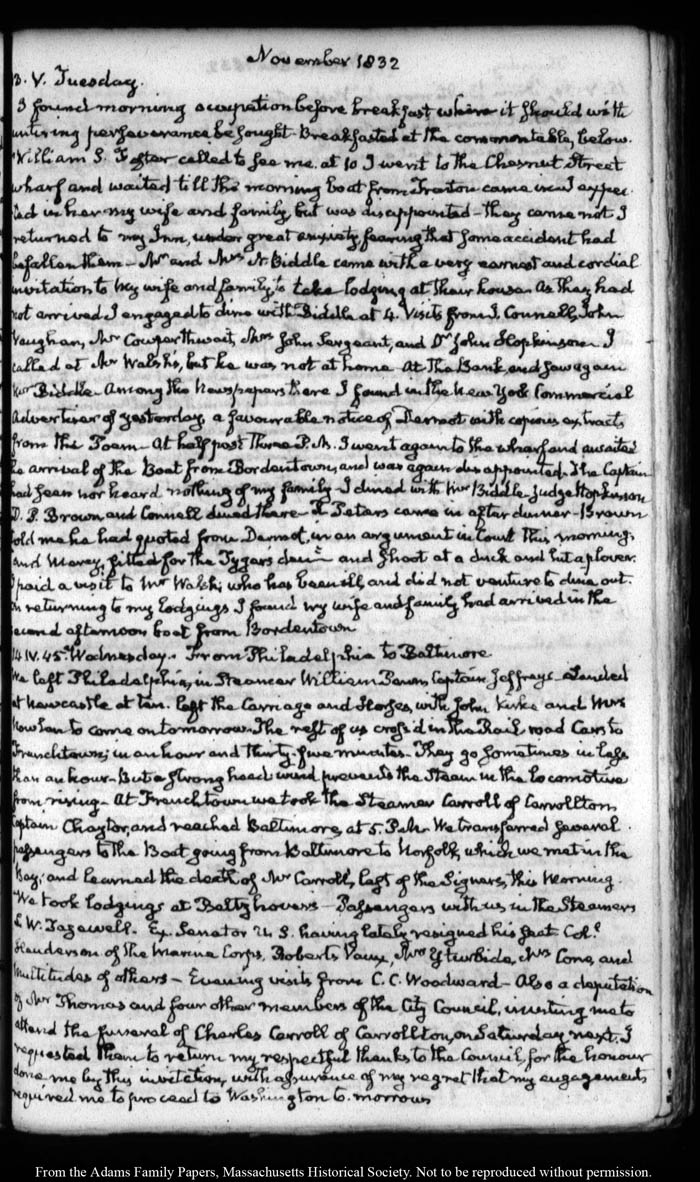 November 1832
13. V. Tuesday.
I found morning occupation before breakfast where it should with
untiring perseverance be sought. Breakfasted at the common table, below.
William S. Foster called to see me. at 10 I went to the Chesnut Street
wharf and waited till the morning boat from Trenton came in. I expec-
ted in her my wife and family, but was disappointed - they came not I
returned to my Inn, under great anxiety, fearing that some accident had
befallen them - Mr and Mrs N. Biddle came with a very earnest and cordial
invitation to my wife and family, to take lodging at their house. As they had
not arrived I engaged to dine with Biddle at 4. Visits from J. Connell, John
Vaughan, Mr Cowperthwait, Mrs John Sergeant, and Dr John Hopkinson. I
called at Mr Walsh's, but he was not at home. At the Bank, and saw again
Mr Biddle. Among the Newspapers there I found in the New York Commercial
Advertiser of yesterday, a favourable notice of Dermot with copious extracts
from the Poem - At half past three P.M. I went again to the wharf and awaited
the arrival of the Boat from Bordentown, and was again disappointed. The Captain
had seen nor heard nothing of my family - I dined with Mr Biddle. Judge Hopkinson
D. P. Brown, and Connell dined there - Peters came in after dinner - Brown
told me he had quoted from Dermot, in an argument in Court this morning,
And Mercy, fitted for the Tygar's den and shoot at a duck and hit a plover.
I paid a visit to Mr Walsh, who has been ill, and did not venture to dine out.
On returning to my lodgings I found my wife and family had arrived in the
second afternoon boat from Bordentown
14. IV. 45. Wednesday. From Philadelphia to Baltimore
We left Philadelphia, in Steamer William Penn, Captain Jeffreys - Landed
at Newcastle at ten. left the Carriage and Horses, with John Kirke and Mrs
Nowlan to come on tomorrow. The rest of us cross'd in the Rail road Cars to
Frenchtown, in an hour and thirty-five minutes. They go sometimes in less
than an hour - But a strong head wind prevents the Steam in the locomotive
from rising - At Frenchtown we took the Steamer Carroll of Carrollton
Captain Chaytor, and reached Baltimore, at 5. P.M. We transferred several
passengers to the Boat going from Baltimore to Norfolk, which we met in the
Bay, and learned the death of Mr Carroll, last of the Signers, this Morning.
We took lodgings at Beltzhoover's - Passengers with us in the Steamers
L. W. Tazewell. Ex. Senator U. S. having lately resigned his seat Coll
Henderson of the Marine Corps, Roberts Vaux, Mrs Yturbide, Mrs Cone, and
multitudes of others - Evening visits from C. C. Woodward - Also a deputation
of Mr Thomas and four other members of the City Council, inviting me to
attend the funeral of Charles Carroll of Carrollton, on Saturday next. I
requested them to return my respectful thanks to the Council, for the honour
done me by this invitation, with assurance of my regret that my engagements
required me to proceed to Washington to-morrow
From the Adams Family Papers, Massachusetts Historical Society. Not to be reproduced without permission.